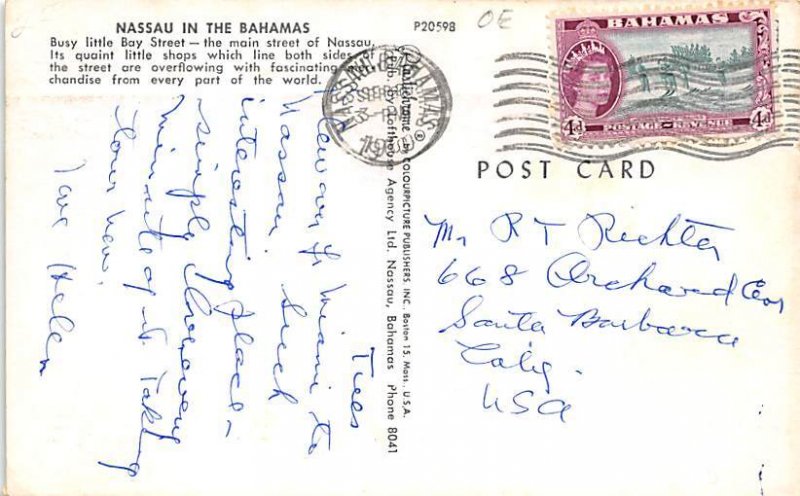 NASSAU IN THE BAHAMAS
Busy little Bay Street — the main street of Nassau.
Its quaint little shops which line both sides of
the street are overflowing with fascinating
chandise from every part of the world.
P20598
OE
BAHAMAS
4d 4d
POSTAGE REVENUE
POST CARD
by COLOURPICTURE PUBLISHERS, INC., Boston 15, Mass., U.S.A.
Agency Ltd. Nassau, Bahamas Phone 8041
Tues
Flew over fr Miami to
Nassau. Such
interesting place –
simply
minute of it. Taking
tour now.
Love Helen
Mr R T Richter
668 Orchard
Santa Barbara
Calif.
USA